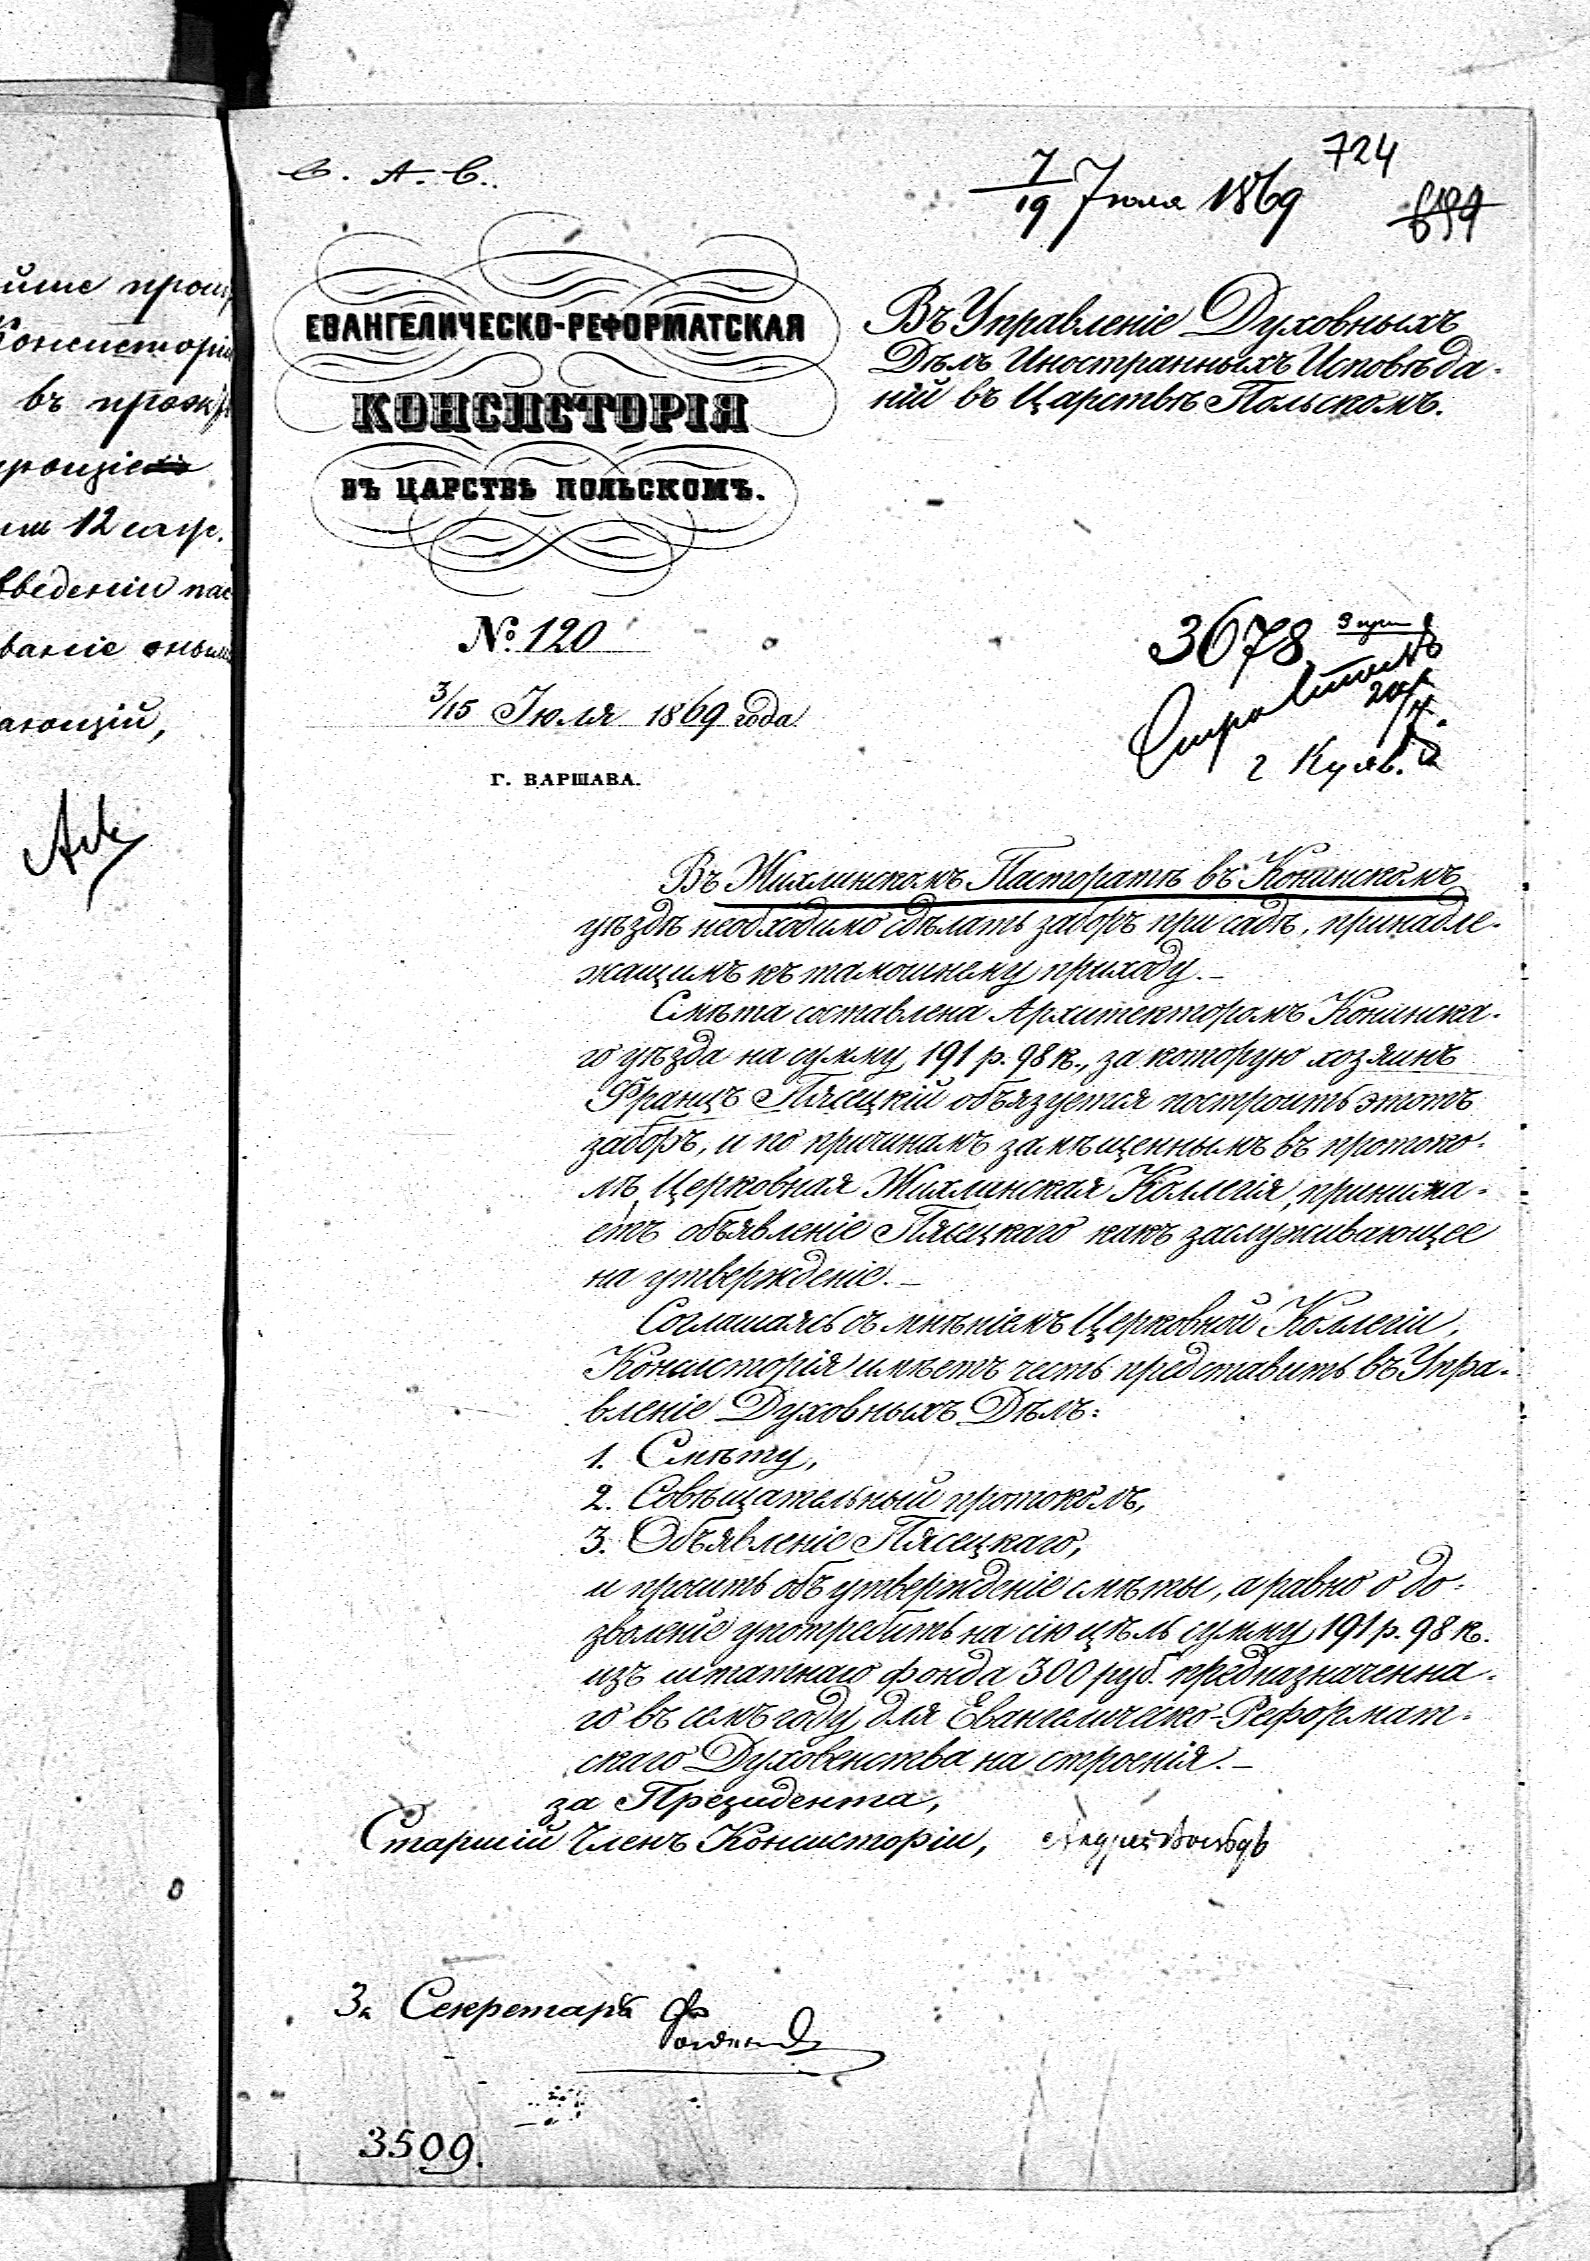 йше прош
Консисторі
въ
12 саж.
введеніи
ваніе оныхъ
ающій,
С. А. С.
7/19 Іюля 1869
724
ЕВАНГЕЛИЧЕСКО-РЕФОРМАТСКАЯ
КОНСИСТОРІЯ
ВЪ ЦАРСТВѢ ПОЛЬСКОМЪ.
№ 120
3/15 Іюля 1869 года
Г. ВАРШАВА.
Въ Управленіе Духовныхъ
Дѣлъ Иностранныхъ Исповѣда-
ній въ Царствѣ Польскомъ.
3678
Въ Жихлинскомъ Пасторатѣ въ Конинскомъ
уѣздѣ необходимо сдѣлать заборъ при садѣ, принадле-
жащимъ къ тамошнему приходу.—
Смѣта составлена Архитекторомъ Конинска-
го уѣзда на сумму 191 р. 98 к., за которую хозяинъ
Францъ Пясецкій объязуется построить этотъ
заборъ, и по причинамъ замѣщеннымъ въ протоко-
лѣ, Церковная Жихлинская Коллегія, принима-
етъ объявленіе Пясецкаго какъ заслуживающее
на утвержденіе.—
Соглашаясь съ мнѣніемъ Церковной Коллегіи,
Консисторія имѣетъ честь представить въ Упра-
вленіе Духовныхъ Дѣлъ:
1. Смѣту,
2. Совѣщательный протоколъ,
3. Объявленіе Пясецкаго,
и проситъ объ утвержденіе смѣты, а равно о до-
зволеніе употребить на сію цѣль сумму 191 р. 98 к.
изъ штатнаго фонда 300 руб. предназначенна-
го въ семъ году для Евангелическо-Реформат-
скаго Духовенства на строенія.—
за Президента,
Старшій Членъ Консисторіи,
За Секретаря
3509.